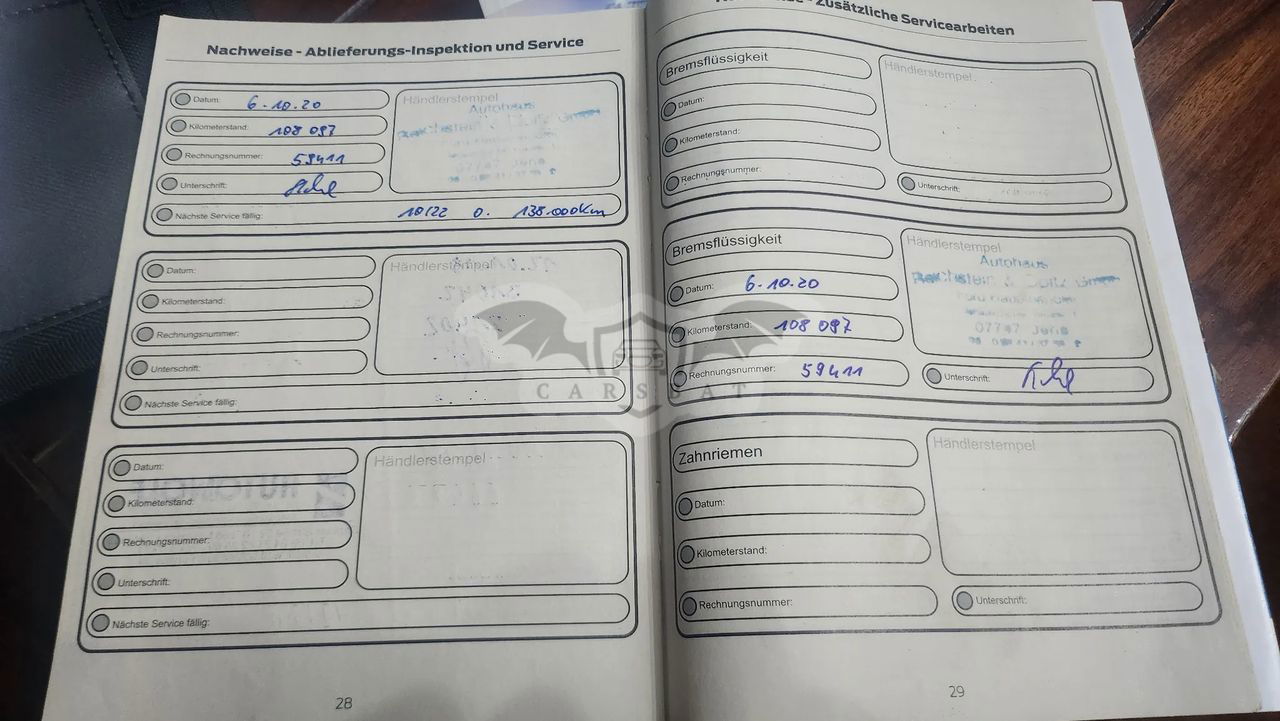 Nachweise - Ablieferungs-Inspektion und Service
Datum: 6.10.20
Kilometerstand: 108 097
Rechnungsnummer: 59411
Unterschrift:
Nächste Service fällig: 10/22 o. 138.000km
Händlerstempel
Autohaus
Datum:
Kilometerstand:
Rechnungsnummer:
Unterschrift:
Nächste Service fällig:
Händlerstempel
Datum:
Kilometerstand:
Rechnungsnummer:
Unterschrift:
Nächste Service fällig:
Händlerstempel
28
Zusätzliche Servicearbeiten
Bremsflüssigkeit
Datum:
Kilometerstand:
Rechnungsnummer:
Händlerstempel
Unterschrift:
Bremsflüssigkeit
Datum: 6.10.20
Kilometerstand: 108 097
Rechnungsnummer: 59411
Händlerstempel
Autohaus
GmbH
07747 Jena
Unterschrift:
Zahnriemen
Datum:
Kilometerstand:
Rechnungsnummer:
Händlerstempel
Unterschrift:
29
CARSBAT